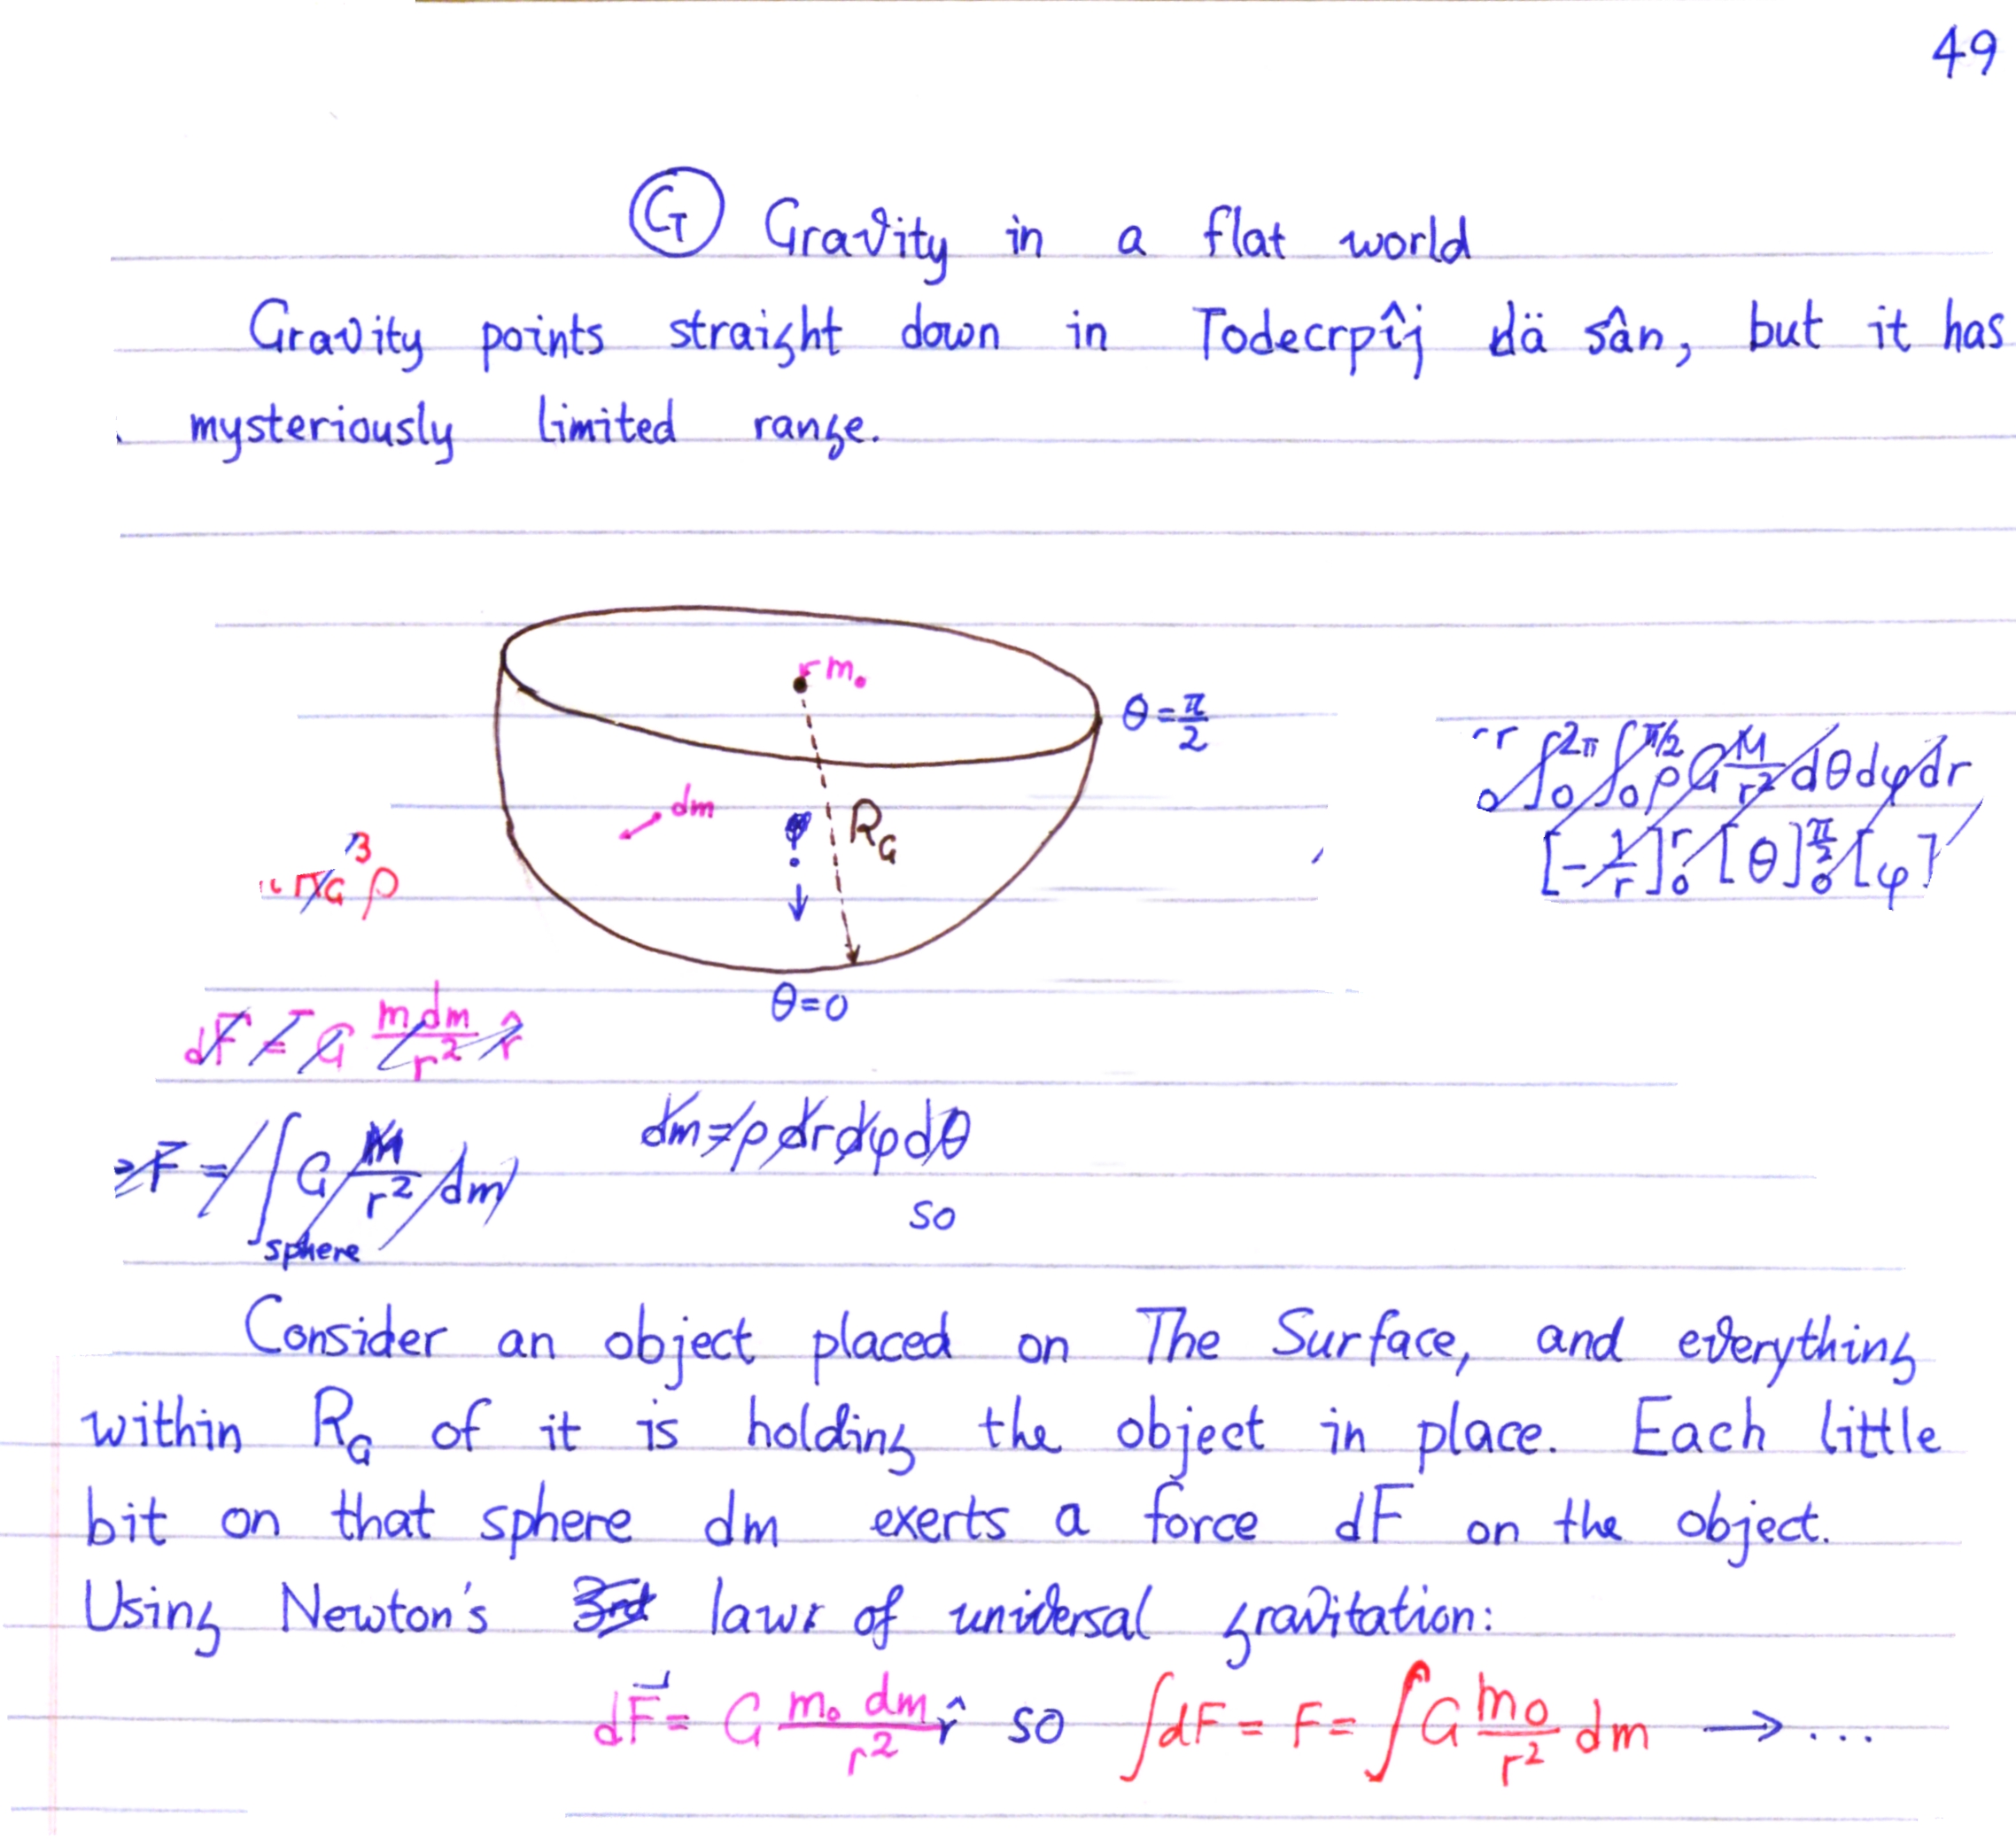 49
G Gravity in a flat world
Gravity points straight down in Todecrpîj dä sân, but it has
mysteriously limited range.
m₀
θ = π/2
r ∫₀^2π ∫₀^π/2 ρ G M/r² dθ dφ dr
dm
R_G
[-1/r]₀^r [θ]₀^π/2 [φ]
π G³ ρ
θ=0
dF = G m dm/r² r̂
dm = ρ dr dφ dθ
F = ∫sphere G M/r² dm
so
Consider an object placed on The Surface, and everything
within R_G of it is holding the object in place. Each little
bit on that sphere dm exerts a force dF on the object.
Using Newton's 3rd laws of universal gravitation:
dF⃗ = G m₀ dm/r² r̂ so ∫dF = F = ∫G m₀/r² dm → ...